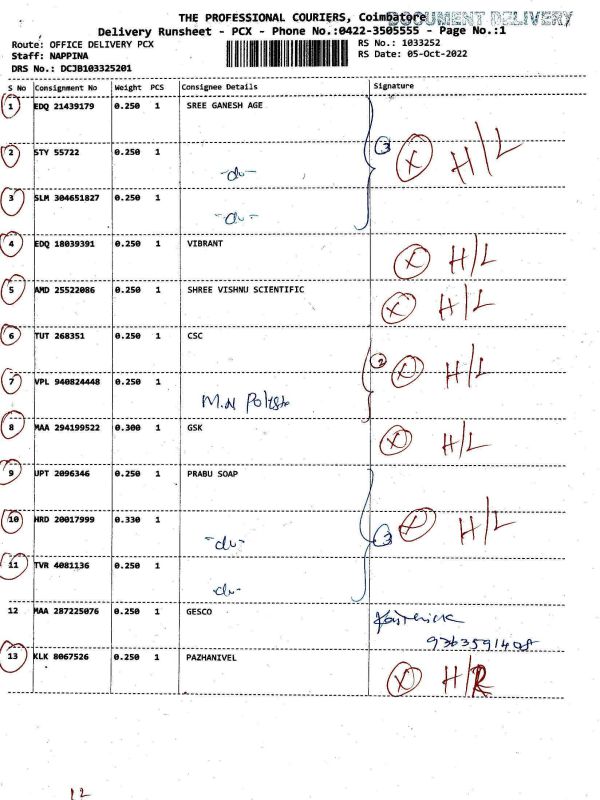 THE PROFESSIONAL COURIERS, Coimbatore
DOCUMENT DELIVERY
Delivery Runsheet - PCX - Phone No.:0422-3505555 - Page No.:1
Route: OFFICE DELIVERY PCX RS No.: 1033252
Staff: NAPPINA RS Date: 05-Oct-2022
DRS No.: DCJB103325201
S No Consignment No Weight PCS Consignee Details Signature
1 EDQ 21439179 0.250 1 SREE GANESH AGE
2 STY 55722 0.250 1 -do- 3 X H/L
3 SLM 304651827 0.250 1 -do-
4 EDQ 18039391 0.250 1 VIBRANT X H/L
5 AMD 25522086 0.250 1 SHREE VISHNU SCIENTIFIC X H/L
6 TUT 268351 0.250 1 CSC
2 X H/L
7 VPL 940824448 0.250 1 M.N
8 MAA 294199522 0.300 1 GSK X H/L
9 UPT 2096346 0.250 1 PRABU SOAP
10 HRD 20017999 0.330 1 -do- 3 X H/L
11 TVR 4081136 0.250 1 -do-
12 MAA 287225076 0.250 1 GESCO
13 KLK 8067526 0.250 1 PAZHANIVEL X H/R
12